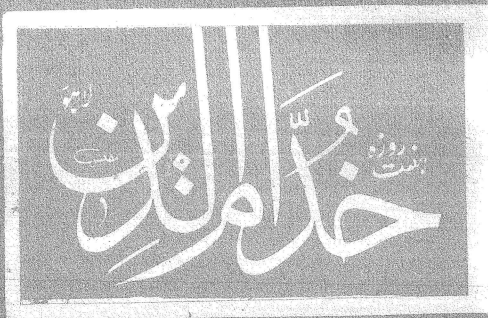 ہفت روزہ
خُدّامُ الدِّین
لاہور